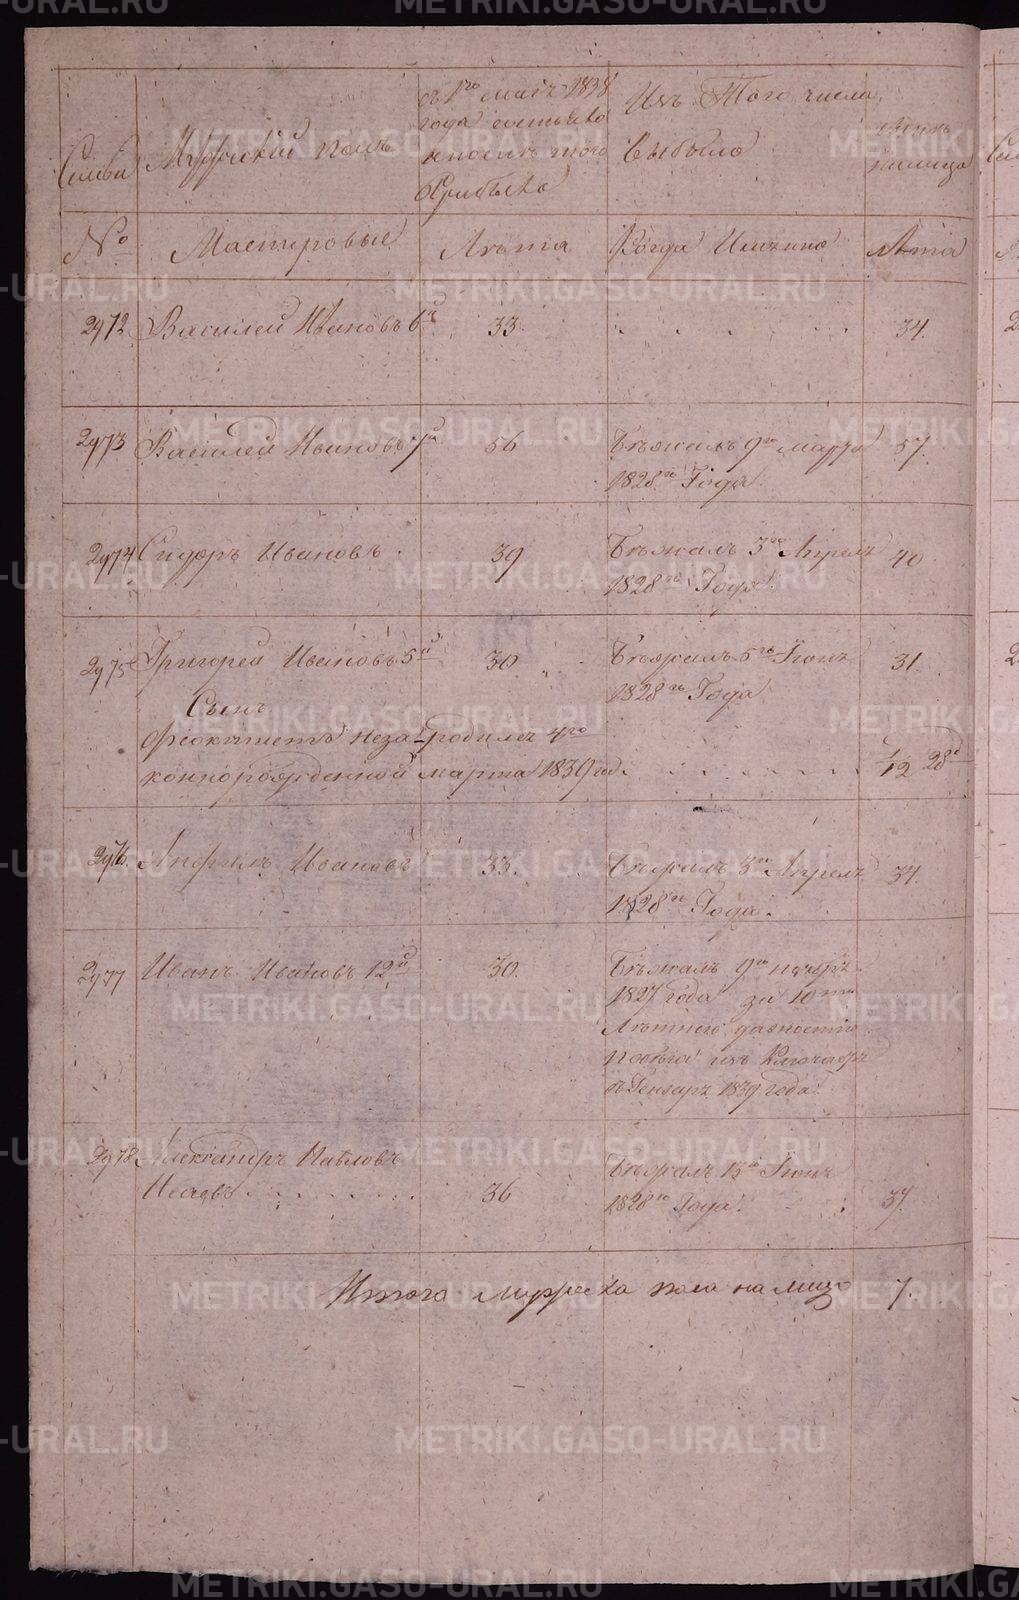 Семьи
Мужеский полъ
съ 1го маiя 1838
года состояло
и после того
прибыло
Изъ Того числа
Выбыло
№
Мастеровые
Лѣта
Когда Именно
Лѣта
2972 Василей Ивановъ 6й 33 34.
2973 Василей Ивановъ 7й 56 Бѣжалъ 9го марта 57.
1828го Года.
2974 Сидоръ Ивановъ. 39 Бѣжалъ 3го Апреля 40
1828го Года.
2975 Григорей Ивановъ 5й 30 Бѣжалъ 5го Iюня 31.
1828го Года
Сынъ
Феоктистъ неза родился 4го
коннорожденной марта 1839 год. 1/12 28
2976. Ивановъ 33. Бѣжалъ 3го Апреля
1828го Года.
2977 Иванъ Ивановъ 12й 30. Бѣжалъ 9го ноября
1827 года за 10ти
Лѣтнею давностiю
побѣга изъ
въ Генваръ 1839 года.
2978 Александръ Павловъ
Исаевъ 36 Бѣжалъ 13го Iюня 37.
1828го Года.
Итого мужеска пола на лицо 7
METRIKI.GASO-URAL.RU